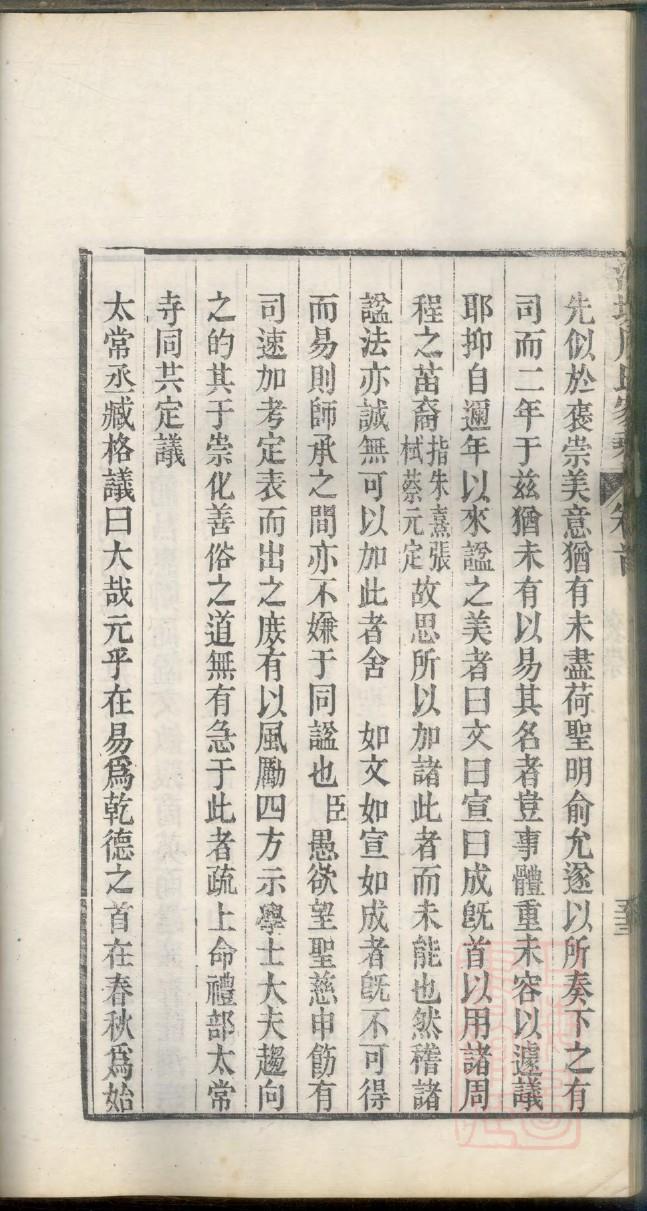 先似於褒崇美意猶有未盡荷聖明俞允遂以所奏下之有
司而二年于兹猶未有以易其名者豈事體重未容以遽議
耶抑自邇年以來諡之美者曰文曰宣曰成旣首以用諸周
程之苗裔指朱熹張栻蔡元定故思所以加諸此者而未能也然稽諸
諡法亦誠無可以加此者舍 如文如宣如成者旣不可得
而易則師承之間亦不嫌于同諡也臣愚欲望聖慈申飭有
司速加考定表而出之庻有以風勵四方示學士大夫趨向
之的其于崇化善俗之道無有急于此者疏上命禮部太常
寺同共定議
太常丞臧格議曰大哉元乎在易爲乾德之首在春秋爲始